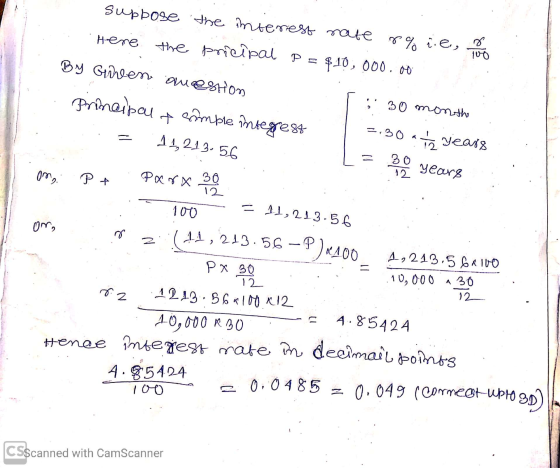 Suppose the interest rate r% i.e, r/100
Here the pricipal P = $10,000.00
By Given question
Prinaipal + simple interest
= 11,213.56
[ ∵ 30 month
= 30 × 1/12 years
= 30/12 years
or, P + (P×r× 30/12)/100 = 11,213.56
or, r = ((11,213.56 - P)×100)/(P× 30/12) = (1,213.56×100)/(10,000 × 30/12)
r = (1213.56×100×12)/(10,000×30) = 4.85424
Hence interest rate in decimail points
4.85424/100 = 0.0485 = 0.049 (correct upto 3D)
CS Scanned with CamScanner